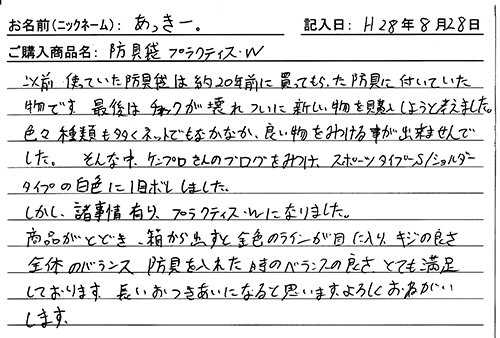 お名前(ニックネーム): あっきー。 記入日: H28年8月28日
ご購入商品名: 防具袋 プラクティス・W
以前 使っていた防具袋は約20年前に買ってもらった防具に付いていた
物です。最後はチャックが壊れついに新しい物を購入しようと考えました。
色々種類も多くネットでもなかなか、良い物をみつける事が出来ませんで
した。 そんな中、ケンプロさんのブログをみつけ、スポーツタイプーS/ショルダー
タイプの白色に1目ボレしました。
しかし、諸事情有り、プラクティス・Wになりました。
商品がとどき、箱から出すと金色のラインが目に入り、キジの良さ
全体のバランス、防具を入れた時のバランスの良さ、とても満足
しております。長いおつきあいになると思います。よろしくおねがい
します。